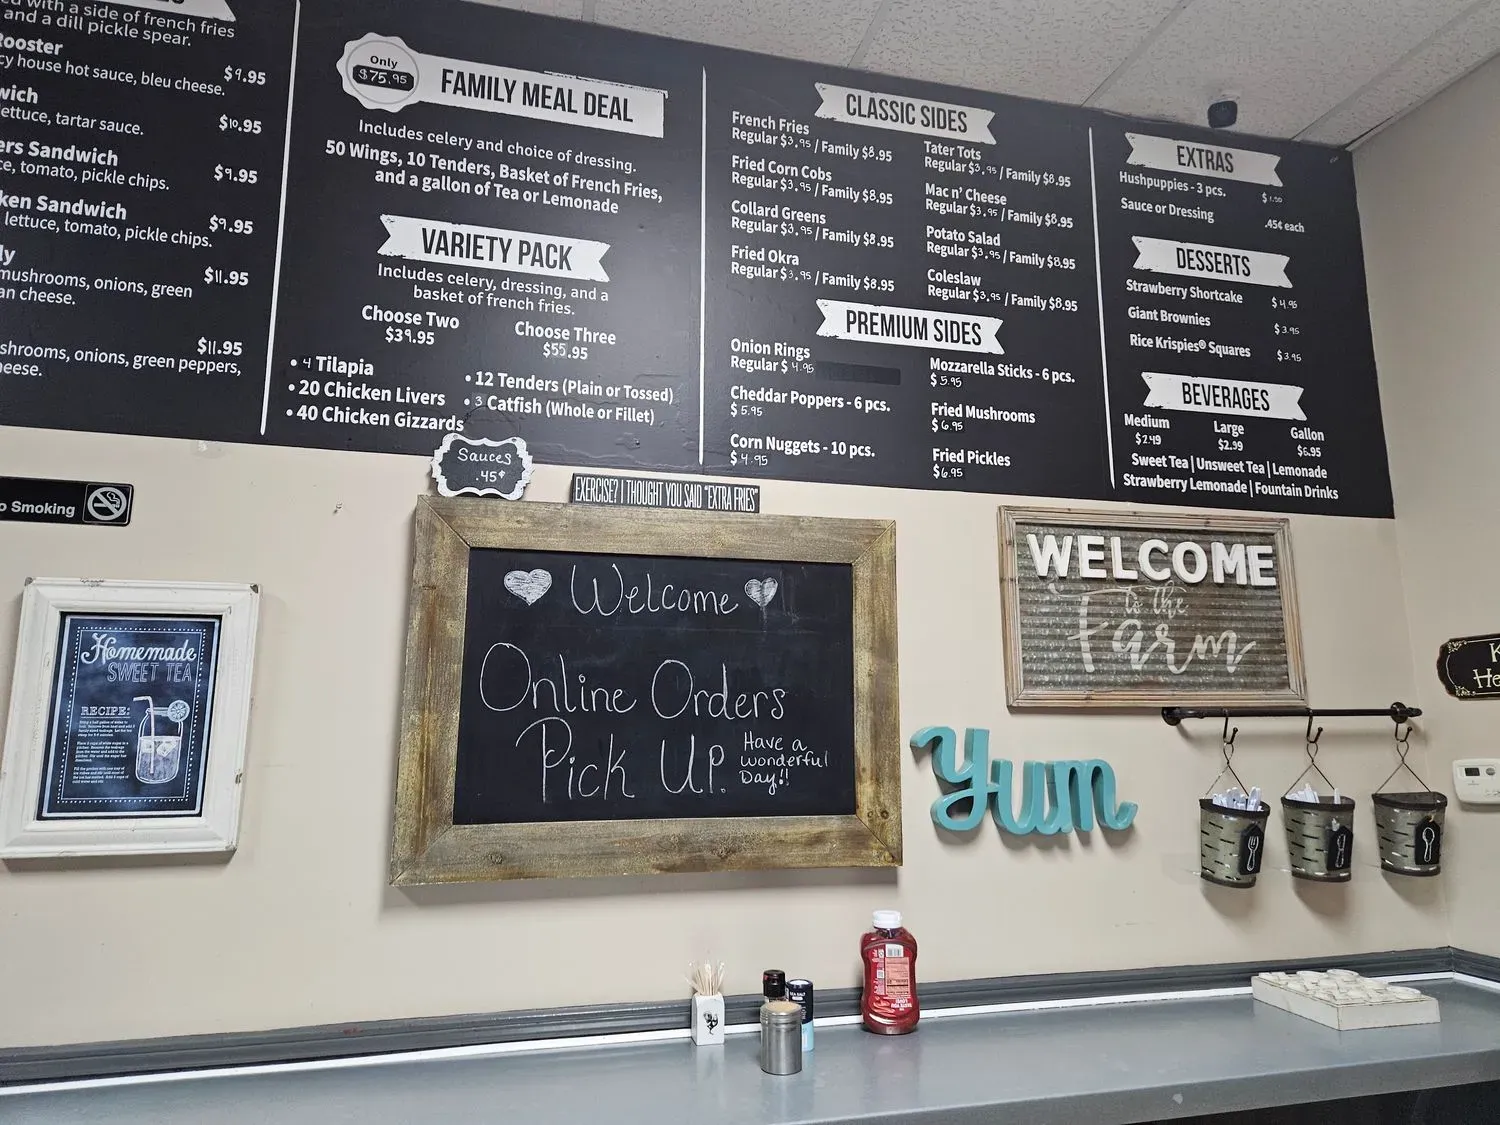 with a side of french fries
and a dill pickle spear.
Rooster
house hot sauce, bleu cheese. $9.95
lettuce, tartar sauce. $10.95
Sandwich
tomato, pickle chips. $9.95
Sandwich
lettuce, tomato, pickle chips. $9.95
mushrooms, onions, green $11.95
cheese.
onions, green peppers, $11.95
Only
$75.95
FAMILY MEAL DEAL
Includes celery and choice of dressing.
50 Wings, 10 Tenders, Basket of French Fries,
and a gallon of Tea or Lemonade
VARIETY PACK
Includes celery, dressing, and a
basket of french fries.
Choose Two
$39.95
Choose Three
$55.95
• 4 Tilapia
• 20 Chicken Livers
• 40 Chicken Gizzards
• 12 Tenders (Plain or Tossed)
• 3 Catfish (Whole or Fillet)
CLASSIC SIDES
French Fries
Regular $3.95 / Family $8.95
Fried Corn Cobs
Regular $3.95 / Family $8.95
Collard Greens
Regular $3.95 / Family $8.95
Fried Okra
Regular $3.95 / Family $8.95
Tater Tots
Regular $3.95 / Family $8.95
Mac n' Cheese
Regular $3.95 / Family $8.95
Potato Salad
Regular $3.95 / Family $8.95
Coleslaw
Regular $3.95 / Family $8.95
PREMIUM SIDES
Onion Rings
Regular $4.95
Cheddar Poppers - 6 pcs.
$5.95
Corn Nuggets - 10 pcs.
$4.95
Mozzarella Sticks - 6 pcs.
$5.95
Fried Mushrooms
$6.95
Fried Pickles
$6.95
EXTRAS
Hushpuppies - 3 pcs.
Sauce or Dressing .45¢ each
DESSERTS
Strawberry Shortcake $4.95
Giant Brownies $3.95
Rice Krispies® Squares $3.95
BEVERAGES
Medium Large Gallon
$2.49 $2.99 $6.95
Sweet Tea | Unsweet Tea | Lemonade
Strawberry Lemonade | Fountain Drinks
Sauces
.45¢
EXERCISE? I THOUGHT YOU SAID "EXTRA FRIES"
Smoking
Homemade
SWEET TEA
RECIPE:
Welcome
Online Orders
Pick Up.
Have a
wonderful
Day!!
WELCOME
to the
Farm
Yum
SEA SALT